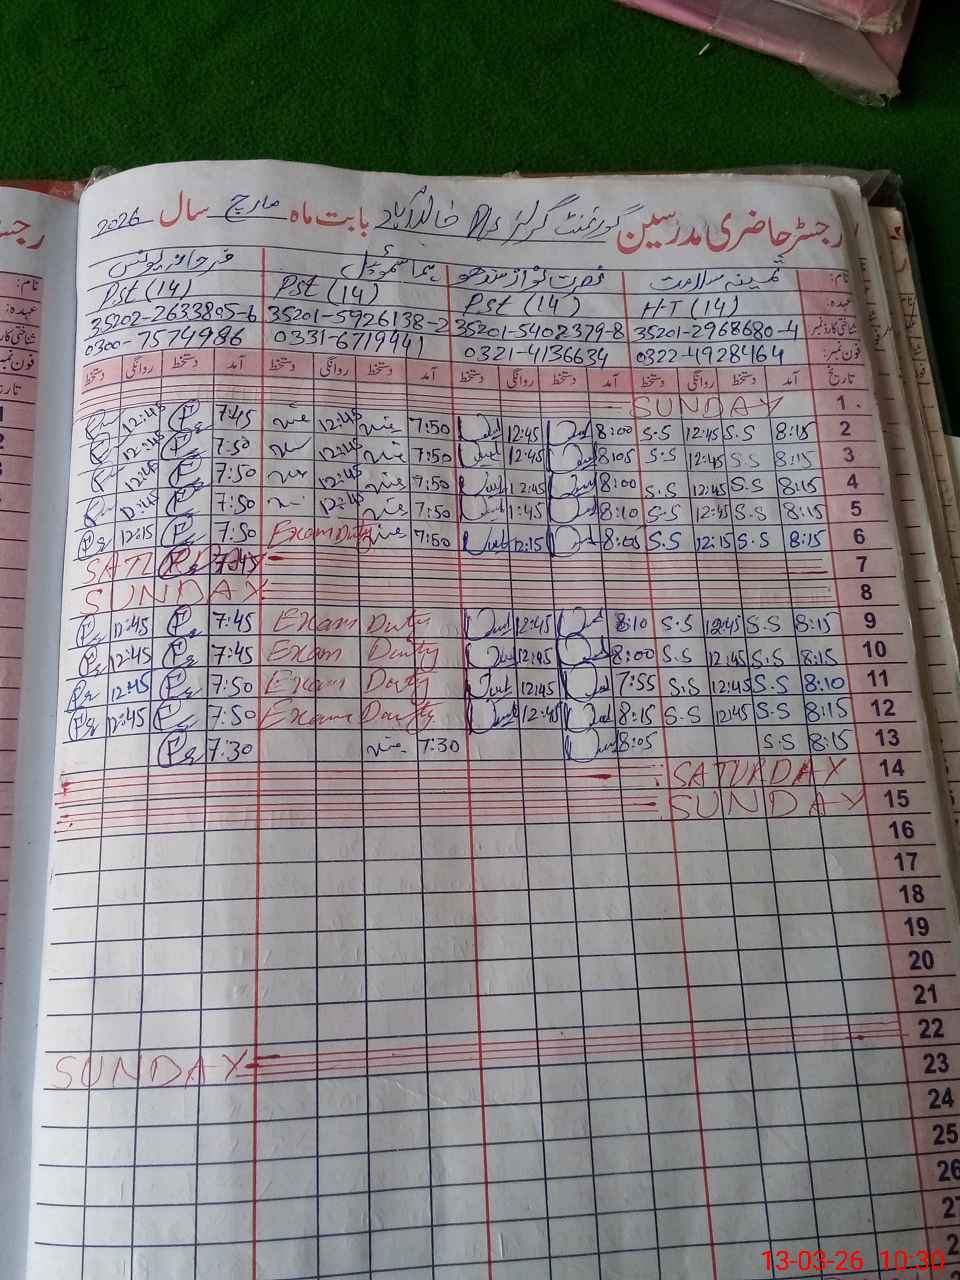 رجسٹر حاضری مدرسین گورنمنٹ گرلز P/s خالد آباد بابت ماہ مارچ سال 2026
نام: ثمینہ سلامت نصرت نواز سندھو ہما سموئیل فرحانہ یونس
عہدہ: H-T (14) P.St (14) P.St (14) P.St (14)
شناختی کارڈ نمبر 35201-2968680-4 35201-5402379-8 35201-5926138-2 35202-2633805-6
فون نمبر: 0322-4928164 0321-4136634 0331-6719441 0300-7574986
تاریخ آمد دستخط روانگی دستخط آمد دستخط روانگی دستخط آمد دستخط روانگی دستخط آمد دستخط روانگی دستخط
1 SUNDAY
2 8:15 S.S 12:45 S.S 8:00 12:45 7:50 12:45 7:45 12:45
3 8:15 S.S 12:45 S.S 8:05 12:45 7:50 12:45 7:50 12:45
4 8:15 S.S 12:45 S.S 8:00 12:45 7:50 12:45 7:50 12:45
5 8:15 S.S 12:45 S.S 8:10 1:45 7:50 12:45 7:50 12:45
6 8:15 S.S 12:15 S.S 8:05 12:15 7:50 Exam Duty 7:50 12:15
7 7:45 SATURDAY
8 SUNDAY
9 8:15 S.S 12:45 S.S 8:10 12:45 Exam Duty 7:45 12:45
10 8:15 S.S 12:45 S.S 8:00 12:45 Exam Duty 7:45 12:45
11 8:10 S.S 12:45 S.S 7:55 12:45 Exam Duty 7:50 12:45
12 8:15 S.S 12:45 S.S 8:15 12:45 Exam Duty 7:50 12:45
13 8:15 S.S 8:05 7:30 7:30
14 SATURDAY
15 SUNDAY
16
17
18
19
20
21
22
23 SUNDAY
24
25
26
27
13-03-26 10:30